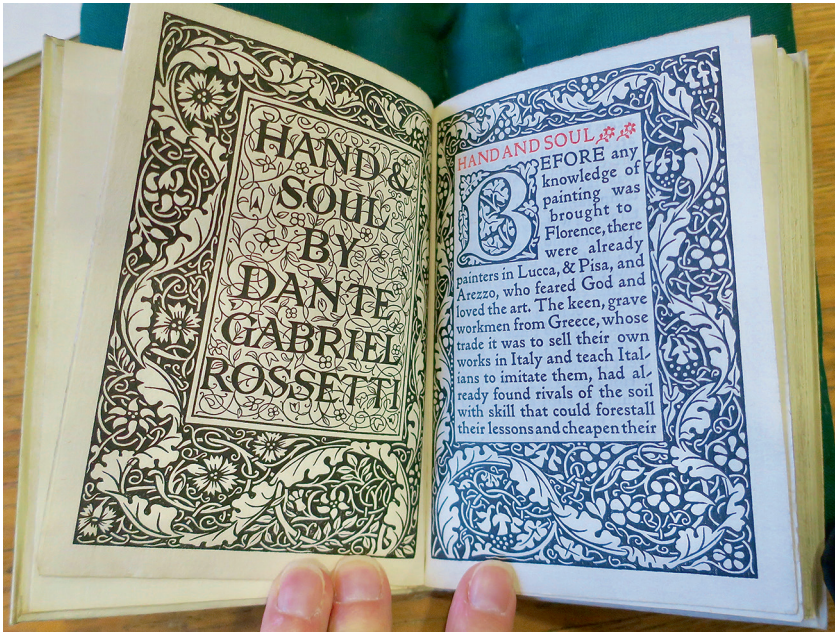 HAND &
SOUL
BY
DANTE
GABRIEL
ROSSETTI
HAND AND SOUL
BEFORE any
knowledge of
painting was
brought to
Florence, there
were already
painters in Lucca, & Pisa, and
Arezzo, who feared God and
loved the art. The keen, grave
workmen from Greece, whose
trade it was to sell their own
works in Italy and teach Ital-
ians to imitate them, had al-
ready found rivals of the soil
with skill that could forestall
their lessons and cheapen their